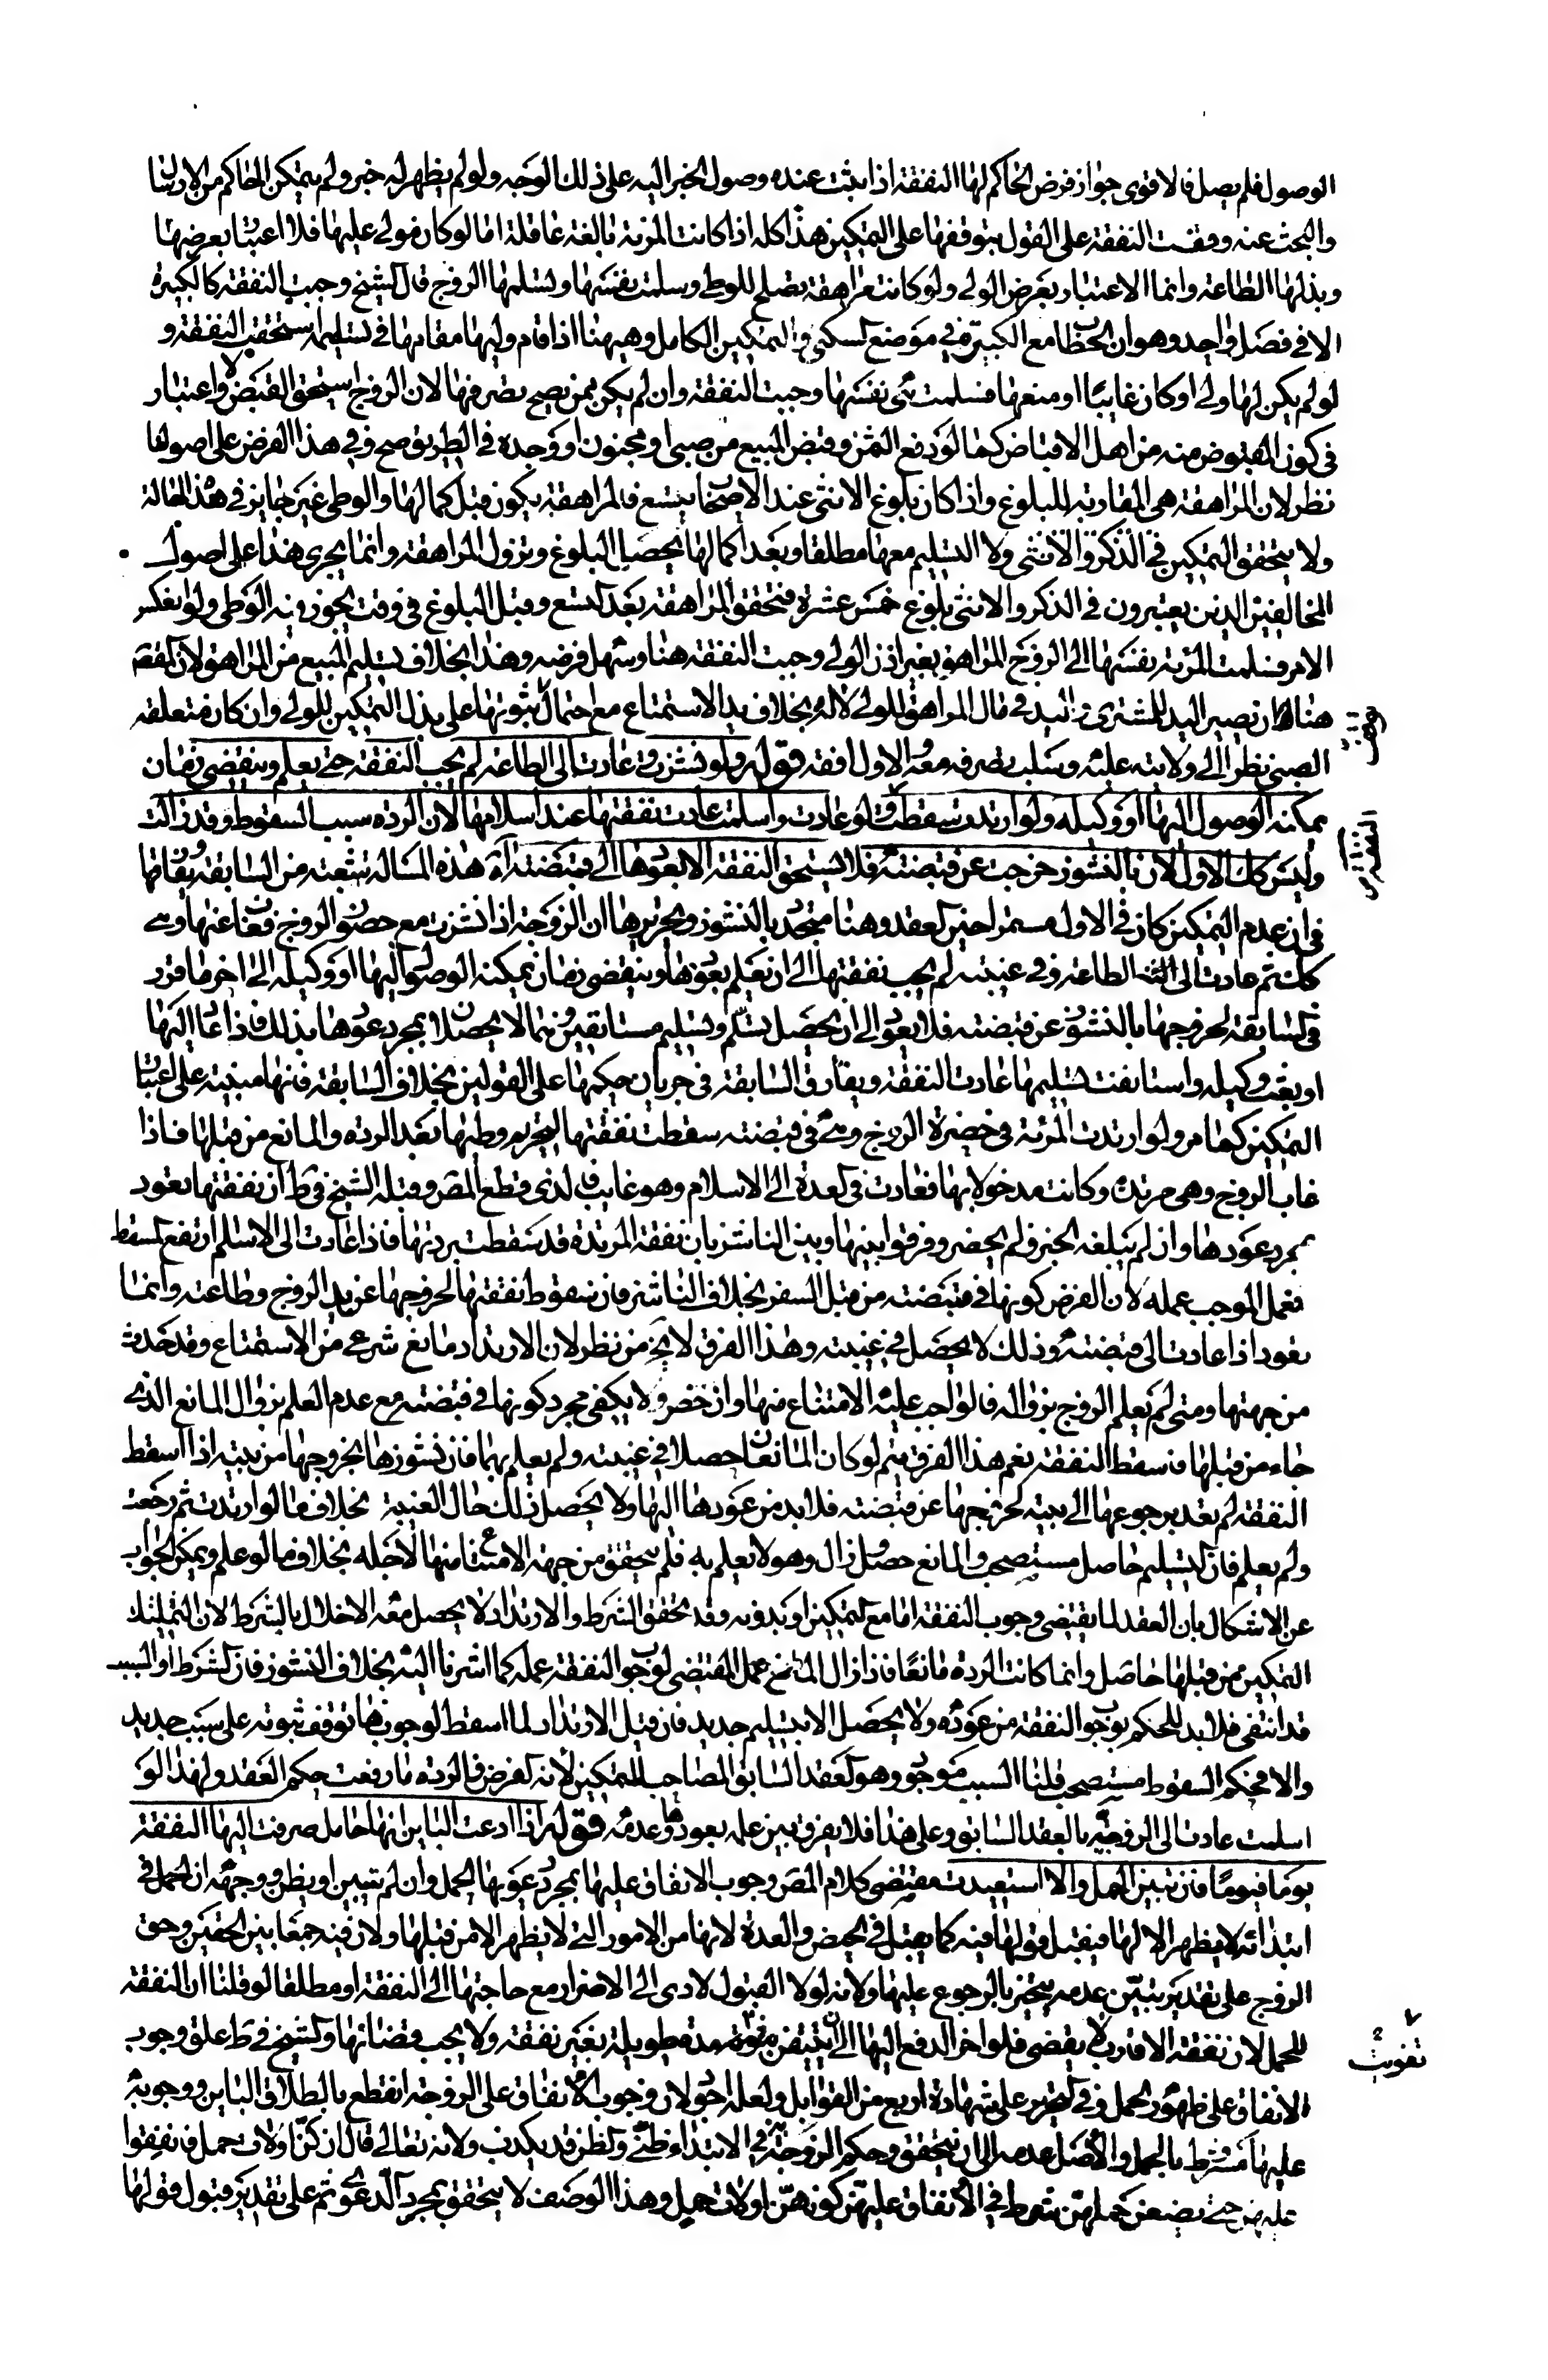 الوصول فلم يصل فالاقوى جواز فرض الحاكم لها النفقة اذا يثبت عنده وصول الخبر اليه على ذلك الوجه ولو لم يظهر له خبر ولم يتمكن الحاكم من الارسال
والبحث عنه وقفت النفقة على القول بتوقفها على التمكين هذا كله اذا كانت المرئة بالغة عاقلة اما لو كان مولى عليها فلا اعتبار بعرضها
وبذلها الطاعة وانما الاعتبار بعرض الولي ولو كانت مراهقة يصلح للوطى وسلمت نفسها وتسلمها الزوج قال الشيخ وجبت النفقة كالكبيرة
الا في فصل واحد وهو ان الخطاب مع الكبيرة في موضع السكنى والتمكين الكامل وهيهنا اذا قام وليها مقامها في تسليمها استحقت النفقة و
لو لم يكن لها ولى او كان غايبا او منعها فسلمت هي نفسها وجبت النفقة وان لم يكن ممن يصح تصرفها لان الزوج استحق القبض ولا اعتبار
في كون المقبوض منه من اهل الاقباض كما لو دفع الثمن وقبض المبيع من صبي او مجنون او وجده في الطريق صح وفي هذا الفرض على اصولنا
نظر لان المراهقة هي المقاربة للبلوغ واذا كان بلوغ الانثى عند الاصحاب بتسع فالمراهقة يكون قبل كمالها والوطى غير جايز في هذه الحالة
ولا يتحقق التمكين في الذكر والانثى ولا التسليم معها مطلقا وبعد اكمالها يحصل البلوغ وتزول المراهقة وانما يجرى هذا على اصول
المخالفين الذين يعتبرون في الذكر والانثى بلوغ خمس عشرة فتحقق المراهقة بعد التسع وقبل البلوغ في وقت يجوز فيه الوطى ولو انعكس
الامر فسلمت المرئة نفسها الى الزوج المراهق بغير اذن الولي وجبت النفقة هنا وسهل فرضه وهذا بخلاف تسليم المبيع من المراهق لان القصد
هناك ان تصير اليد للمشترى واليد في مال المراهق للولي لا له بخلاف يد الاستمتاع مع احتمال ثبوتها على بذل التمكين للولي وان كان متعلقه
الصبي نظرا الى ولايته عليه وسلب تصرفه معه والاول افقه قوله ولو نشزت وعادت الى الطاعة لم يجب النفقة حتى يعلم وينقضى زمان
يمكنه الوصول اليها او وكيله ولو ارتدت سقطت ولو عادت واسلمت عادت نفقتها عند اسلامها لان الردة سبب السقوط وقد زالت
وليس كك الاول لان بالنشوز خرجت عن قبضته فلا يستحق النفقة الا بعودها الى قبضته آه هذه المسالة شعبة من السابقة وتفارقها
في ان عدم التمكين كان في الاول مستمرا حين العقد وهنا متجدد بالنشوز وتحريرها ان الزوجة اذا نشزت مع حضور الزوج فغاب عنها وهي
كك ثم عادت الى الطاعة وفي غيبته لم يجب نفقتها الى ان يعلم بعودها وينقضى زمان يمكنه الوصول اليها او وكيله الى اخر ما قرر
في السابقة لخروجها بالنشوز عن قبضته فلا يعود الى ان يحصل تسلم وتسليم مستانفين وهما لا يحصلان بمجرد عودها بذلك فاذا عاد اليها
او بعث وكيله واستانفت تسليمها عادت النفقة ويفارق السابقة في جريان حكمها على القولين بخلاف السابقة فانها مبنية على اعتبار
التمكين كما مر ولو ارتدت المرئة في حضرة الزوج وهي في قبضته سقطت نفقتها لتحريم وطيها بعد الردة والمانع من قبلها فاذا
غاب الزوج وهي مرتدة وكانت مدخولا بها فعادت في العدة الى الاسلام وهو غايب فالذي قطع المصر وقبله الشيخ في ط ان نفقتها تعود
بمجرد عودها وان لم يبلغه الخبر ولم يحضر وفرقوا بينها وبين الناشز بان نفقة المرتدة قد سقطت بردتها فاذا عادت الى الاسلام ارتفع المسقط
فعمل الموجب عمله لان الفرض كونها في قبضته من قبل السفر بخلاف الناشز فان سقوط نفقتها لخروجها عن يد الزوج وطاعته وانما
يعود اذا عادت الى قبضته وذلك لا يحصل في غيبته وهذا الفرق لا يخ من نظر لان الارتداد مانع شرعي من الاستمتاع وقد حدث
من جهتها ومتى لم يعلم الزوج بزواله فالواجب عليه الامتناع منها وان حضر ولا يكفى مجرد كونها في قبضته مع عدم العلم بزوال المانع الذى
جاء من قبلها فاسقط النفقة نعم هذا الفرق يتم لو كان المانعان حصلا في غيبته ولم يعلم بهما فان نشوزها بخروجها من بيته اذا اسقط
النفقة لم يعد برجوعها الى بيته لخروجها عن قبضته فلا بد من عودها اليها ولا يحصل ذلك حال الغيبة بخلاف ما لو ارتدت ثم رجعت
ولم يعلم فان التسليم حاصل مستصحب والمانع حصل وزال وهو لا يعلم به فلم يتحقق من جهته الامتناع منها لاجله بخلاف ما لو علم ويمكن الجواب
عن الاشكال بان العقد لما يقتضى وجوب النفقة اما مع التمكين او بدونه وقد تحقق الشرط والارتداد لا يحصل معه الاخلال بالشرط لان التمليك
التمكين من قبلها حاصل وانما كانت الردة مانعا فاذا زال المانع عمل المقتضى لوجوب النفقة عمله كما اشرنا اليه بخلاف النشوز فان الشرط او السبب
قد انتفى فلا بد للحكم بوجوب النفقة من عوده ولا يحصل الا بتسليم جديد فان قيل الارتداد لما اسقط الوجوب فهنا توقف ثبوته على سبب جديد
والا فحكم السقوط مستصحب قلنا السبب موجود وهو العقد السابق المصاحب للتمكين لانه الفرض فالردة ما رفعت حكم العقد ولهذا لو
اسلمت عادت الى الزوجية بالعقد السابق وعلى هذا فلا يفرق بين علمه بعودها وعدمه قوله اذا ادعت البائن انها حامل صرفت اليها النفقة
يوما فيوما فان تبين الحمل والا استعيدت مقتضى كلام المصر وجوب الانفاق عليها بمجرد دعويها الحمل وان لم يتبين او يظن ووجهه ان الحمل في
ابتدائه لا يظهر الا لها فيقبل قولها فيه كما يقبل في الحيض والعدة لانها من الامور التي لا يظهر الا من قبلها ولان فيه جمعا بين الحقين وحق
الزوج على تقدير تبين عدمه ينجبر بالرجوع عليها ولانه لولا القبول لادى الى الاضرار مع حاجتها الى النفقة او مطلقا لو قلنا ان النفقة
للحمل لان نفقة الاقارب لا يقضى فلو اخر الدفع اليها الى ان يتيقن تفويت مدة طويلة بغير نفقة ولا يجب قضائها والشيخ في ط علق وجوب
الانفاق على ظهور الحمل وفي التحرير على شهادة اربع من القوابل ولعله اجود لان وجوب الانفاق على الزوجة انقطع بالطلاق الباين ووجوبه
عليها مشروط بالحمل والاصل عدمه الى ان يتحقق وحكم الزوجة في الابتداء ظنى والظن قد يكذب ولانه تعالى قال ان كن اولات حمل فانفقوا
عليهن حتى يضعن حملهن شرط في الانفاق عليهن كونهن اولات حمل وهذا الوصف لا يتحقق بمجرد الدعوى ثم على تقدير قبول قولها
تفويت